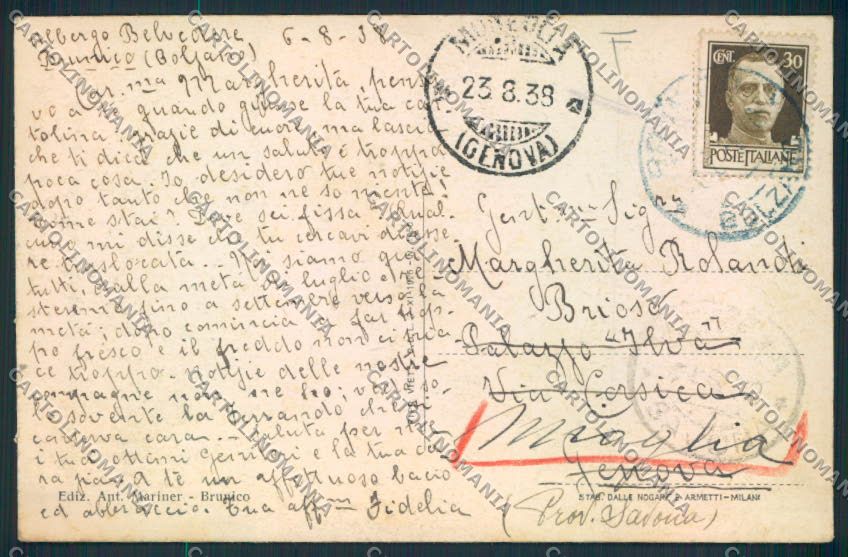 Albergo Belvedere 6-8-38
Brunico (Bolzano)
Car.ma Margherita, pensa
vo a te quando giunse la tua car
tolina. Grazie di cuore, ma lascia
che ti dica che un saluto è troppo
poca cosa. Io desidero tue notizie
dopo tanto che non ne so niente!
Come stai? Dove sei fissa? Qual
cuno mi disse che tu cercavi d'esse
re traslocata. Noi siamo qui
tutti, dalla metà di luglio e re
steremo fino a settembre verso la
metà; dopo comincia a far trop
po fresco e il freddo non ci pia
ce troppo. Notizie delle nostre
compagne non ne ho; vedo so
lo sovente la
cara. Saluta per me
i tuoi ottimi genitori e la tua
a te un affettuoso bacio
ed abbraccio. Tua aff.ma Fidelia
Ediz. Ant. Mariner - Brunico
MURIALDO
23.8.38
(GENOVA)
T
CENT. 30
POSTE ITALIANE
Gent.ma Sig.ra
Margherita Rolandi
Briosé
Palazzo "Ilva"
Via Corsica
Mioglia
Genova
(Prov. Savona)
STAB. DALLE NOGARE E ARMETTI - MILANO
CARTOLINOMANIA